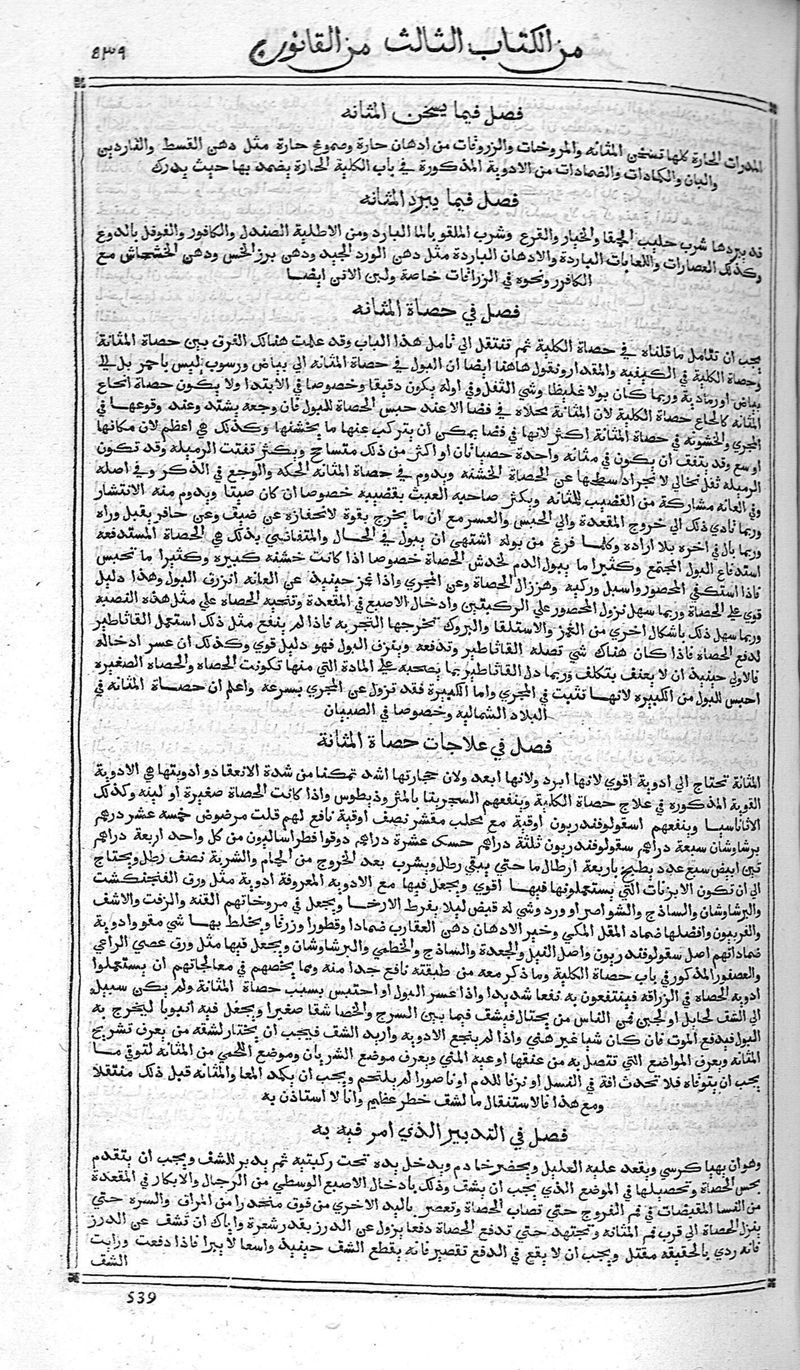 من الكتاب الثالث من القانون
٥٣٩
فصل فيما يسخن المثانه
المدرات الحارة كلها تسخن المثانه والمروخات والزروقات من ادهان حارة وصموغ حارة مثل دهن القسط والناردين
والبان والكمادات والضمادات من الادوية المذكورة في باب الكلية الحارة يضمد بها حيث يدرك
فصل فيما يبرد المثانه
قد يبردها شرب حليب الحمقا والخيار والقرع وشرب الملقو بالما البارد ومن الاطلية الصندل والكافور والفوفل بالدوغ
وكذلك العصارات واللعابات الباردة والادهان الباردة مثل دهن الورد الجيد ودهن بزر الخس ودهن الخشخاش مع
الكافور ونحوه في الزراقات خاصة ولبن الاتن ايضا
فصل في حصاة المثانه
يجب ان تتامل ما قلناه في حصاة الكلية ثم تنتقل الي تامل هذا الباب وقد علمت هنالك الفرق بين حصاة المثانة
وحصاة الكلية في الكيفيه والمقدار ونقول هاهنا ايضا ان البول في حصاة المثانه الي بياض ورسوب ليس باحمر بل الي
بياض او رمادية وربما كان بولا غليظا وفي اوله يكون دقيقا وخصوصا في الابتدا ولا يكون حصاة
المثانه لان المثانة مخلاه في فضا الا عند حبس الحصاة للبول فان وجعه يشتد وعند وقوعها في
المجري والخشونه في حصاة المثانه اكثر لانها في فضا يمكن ان يتركب عنها ما يخشنها وكذلك هي اعظم لان مكانها
اوسع وقد يتفق ان يكون في مثانه واحدة حصاتان او اكثر من ذلك متساحج ويكثر تفتت الرميله وقد تكون
الرميله ثفل نخالي لانجراد سطحها عن الحصاة الخشنه ويدوم في حصاة المثانه الحكه والوجع في الذكر وفي اصله
وفي العانه مشاركة من القضيب للمثانه ويكثر صاحبه العبث بقضيبه خصوصا ان كان صبيا ويدوم منه الانتشار
وربما تادي ذلك الي خروج المقعدة والي الحبس والعسر مع ان ما يخرج يخرج بقوة لانحفازه عن ضيق وعن حافز ثقيل وراه
وربما بال في اخره بلا اراده وكلما فرغ من بوله اشتهي ان يبول في الحال
استدفاع البول المجتمع وكثيرا ما يبول الدم لخدش الحصاة خصوصا اذا كانت خشنه كبيره وكثيرا ما تحبس
فاذا استلقي المحصور واشيل وركيه وهز زال الحصاة وعن المجري واذا غمز حينيذ عن العانه انزرق البول وهذا دليل
قوي علي الحصاة وربما سهل نزول المحصور علي الركبتين وادخال الاصبع في المقعدة وتنحيه الحصاه علي مثل هذه النصبه
وربما سهل ذلك باشكال اخري من الغمز والاستلقا والبروك تخرجها التجربه فاذا لم ينفع مثل ذلك استعمل القاثاطير
لدفع الحصاة فاذا كان هناك شي تصله القاثاطير وتدفعه وينزف البول فهو دليل قوي وكذلك ان عسر ادخاله
فالاولي حينيذ ان لا يعنف بتكلف وربما دل القاثاطير بما يصحبه علي المادة التي منها تكونت الحصاه والحصاه الصغيره
احبس للبول من الكبيره لانها تثبت في المجري واما الكبيرة فقد تزول عن المجري بسرعه واعلم ان حصاة المثانه في
البلاد الشماليه وخصوصا في الصبيان
فصل في علاجات حصاة المثانة
المثانة تحتاج الي ادوية اقوي لانها ابرد ولانها ابعد ولان حجارتها اشد تمكنا من شدة الانعقاد وادويتها هي الادوية
القوية المذكوره في علاج حصاة الكلية وينفعهم السجرينا بالمثروذيطوس واذا كانت الحصاة صغيرة او لينه وكذلك
الاثاناسيا وينفعهم اسقولوفندريون اوقية مع محلب مقشر نصف اوقية نافع لهم قلت مرضوض خمسة عشر درهم
برشاوشان سبعة دراهم سقولوفندريون ثلثة دراهم حسك عشرة دراهم دوقوا فطراساليون من كل واحد اربعة دراهم
تين ابيض سبع عدد يطبخ باربعة ارطال ما حتي يبقي رطل ويشرب بعد الخروج من الحمام والشربة نصف رطل ويحتاج
الي ان تكون الابزنات التي يستعملونها فيها اقوي ويجعل فيها مع الادوية المعروفة ادوية مثل ورق الفنجنكشت
والبرشاوشان والساذج والشواصرا وورد وشي له قبض ليلا يفرط الارخا ويجعل في مروخاتهم القنه والزفت والاشق
والفربيون وافضلها ضماد المقل المكي وخير الادهان دهن العقارب ضمادا وقطورا وزرقا ويخلط بها شي مقو وادوية
ضماداتهم اصل سقولوفندريون واصل النيل والجعدة والساذج والخطمي والبرشاوشان ويجعل فيها مثل ورق عصي الراعي
والعصفور المذكور في باب حصاة الكلية وما ذكر معه من طبقته نافع جدا منه ومما يخصهم في معالجاتهم ان يستعملوا
ادوية الحصاه في الزراقه فينتفعون به نفعا شديدا واذا عسر البول او احتبس بسبب حصاة المثانة ولم يكن سبيل
الي الشق لحايل او لجبن فمن الناس من يحتال فيشق فيما بين الشرج والخصا شقا صغيرا ويجعل فيه انبوبا ليخرج به
البول فيدفع الموت فان كان شيا غير هني واذا لم ينجع الادوية واريد الشق فيجب ان يختار لشقه من يعرف تشريح
المثانه ويعرف المواضع التي تتصل به من عنقها اوعيه المني ويعرف موضع الشريان وموضع اللحمي من المثانه لتوقي ما
يجب ان يتوقاه فلا تحدث افة في النسل او نزفا للدم او ناصورا لم يلتحم ويجب ان يكمد المعا والمثانه قبل ذلك منتقلا
ومع هذا فالاشتغال بالشق خطر عظيم وانا لا استاذن به
فصل في التدبير الذي امر فيه به
وهو ان يهيا كرسي ويقعد عليه العليل ويحضر خادم ويدخل يده تحت ركبتيه ثم يدبر للشق ويجب ان يتقدم
بحس الحصاة وتحصيلها في الموضع الذي يجب ان يشق وذلك بادخال الاصبع الوسطي من الرجال والابكار في المقعدة
من النسا المقتضات في فم الفروج حتي تصاب الحصاة وتعصر باليد الاخري من فوق منحدرا من المراق والسره حتي
ينزل الحصاة الي قرب فم المثانه ويجتهد حتي تدفع الحصاة دفعا يزول عن الدرز بقدر شعرة واياك ان تشق عن الدرز
فانه ردي بالحقيقه مقتل ويجب ان لا يقع في الدفع تقصير فانه يقطع الشق حينيذ واسعا لا يبرا فاذا دفعت ورايت
الشق
539